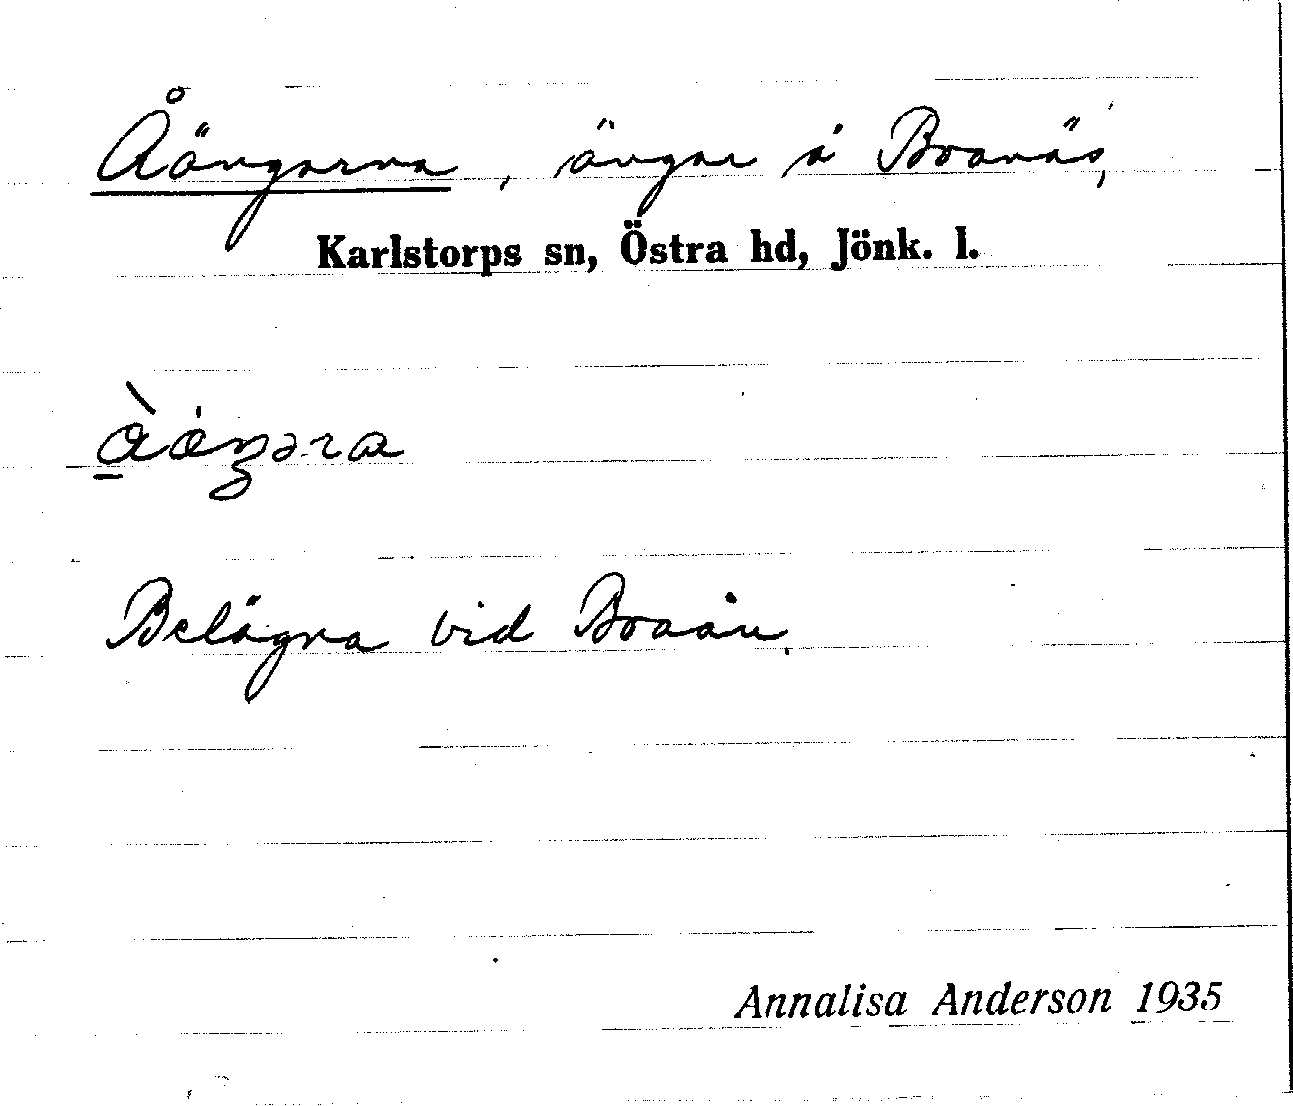 Åängarna, ängar å Boanäs,
Karlstorps sn, Östra hd, Jönk. l.
Belägna vid Boaån.
Annalisa Anderson 1935